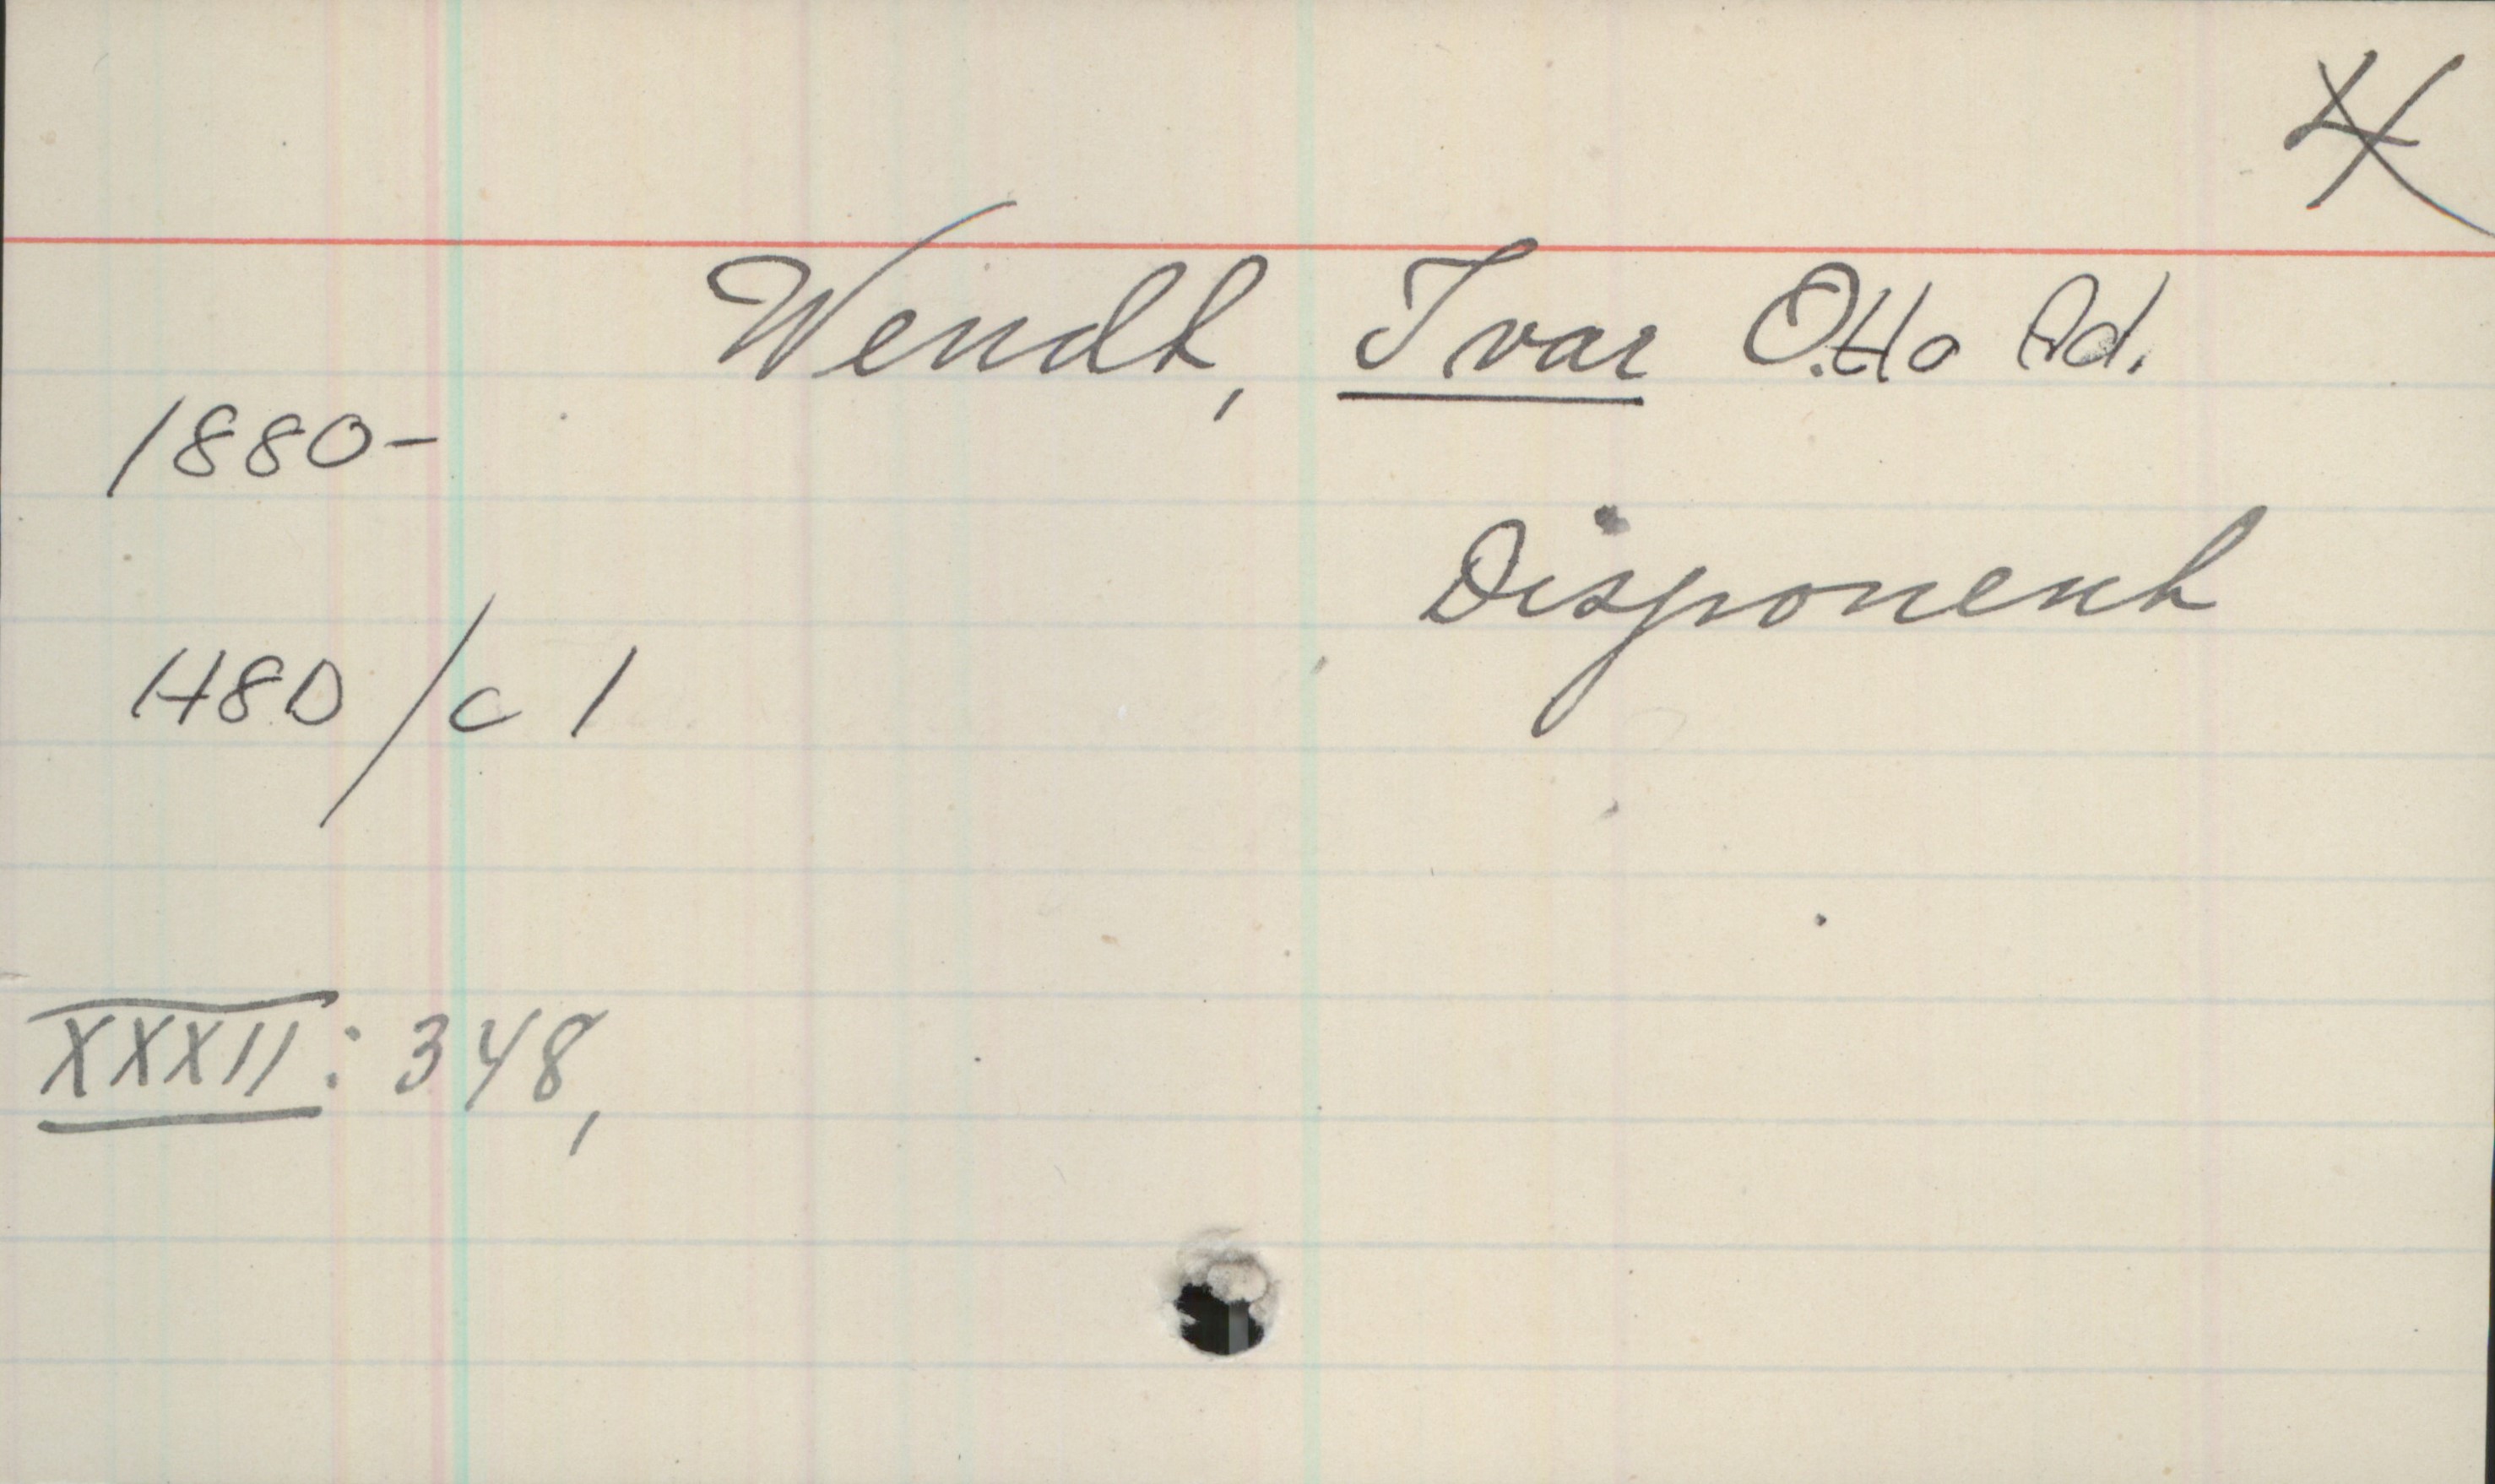 4
Wendt, Ivar Otto Ad.
1880-
Disponent
H8D/c 1
XXXII: 348,